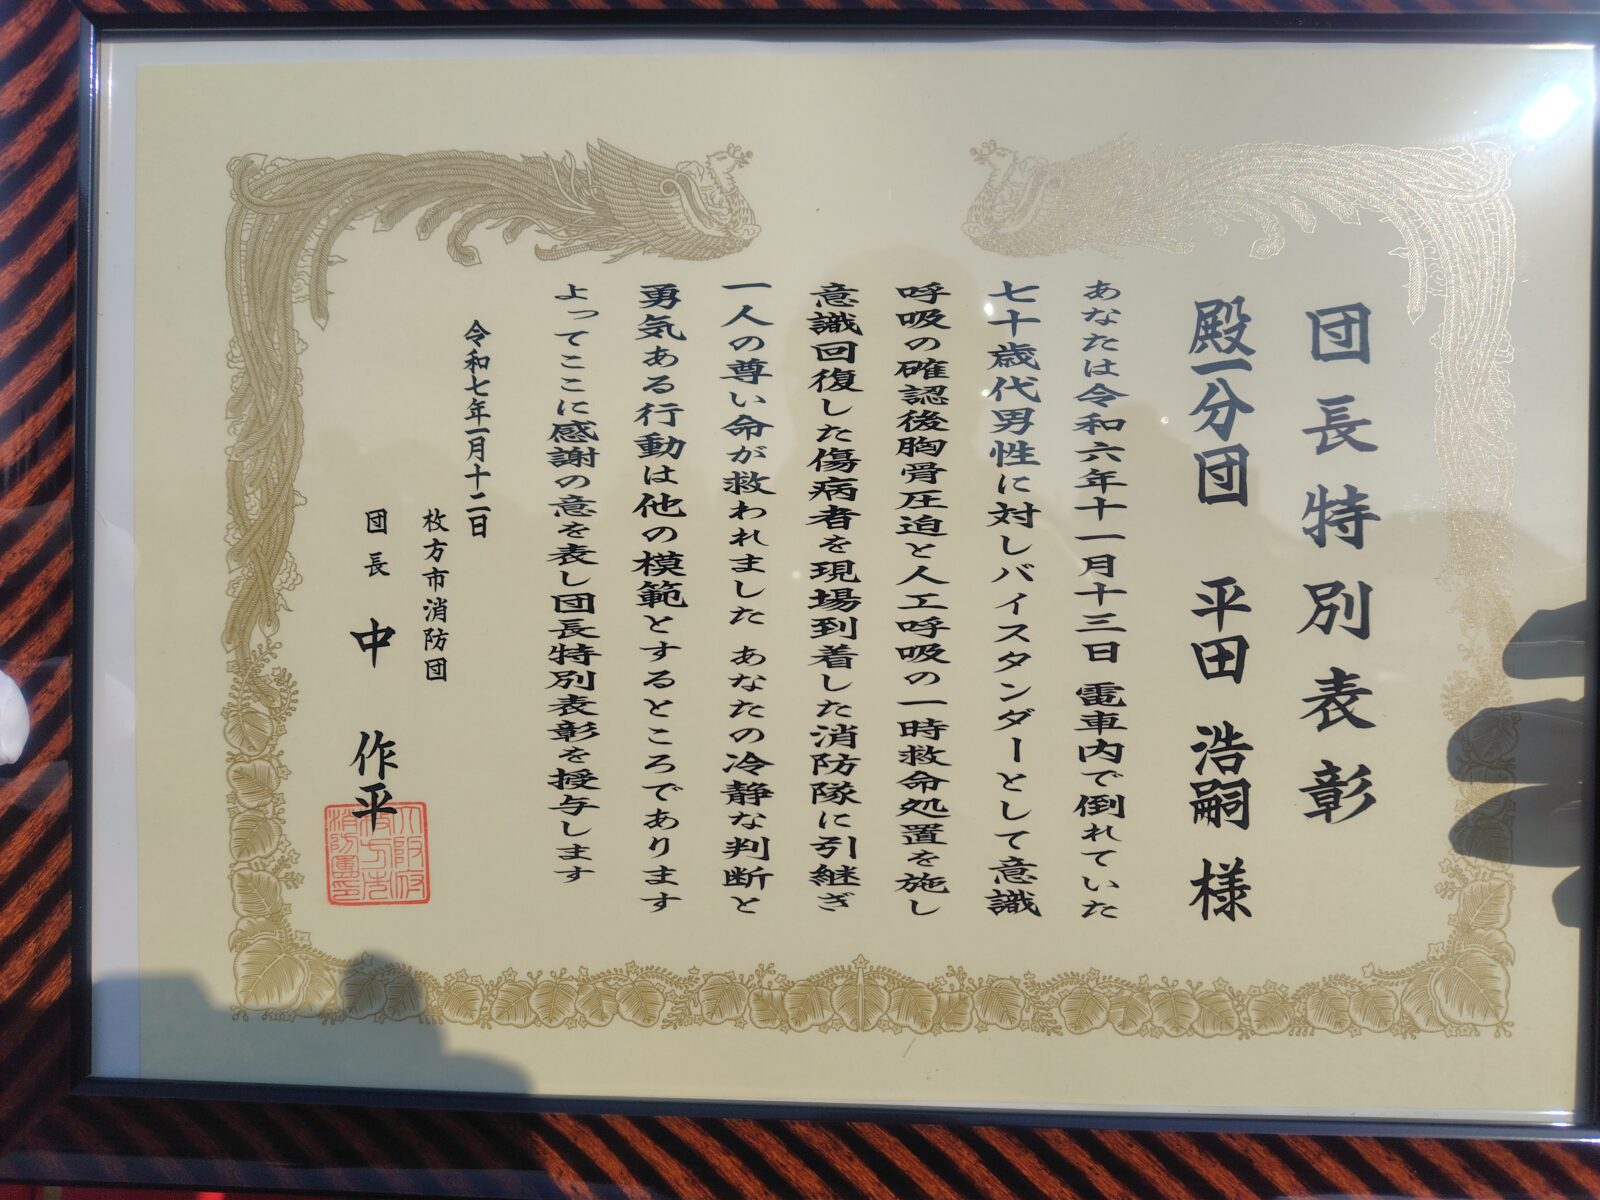 団長特別表彰
殿一分団 平田 浩嗣 様
あなたは令和六年十一月十三日 電車内で倒れていた
七十歳代男性に対しバイスタンダーとして意識
呼吸の確認後胸骨圧迫と人工呼吸の一時救命処置を施し
意識回復した傷病者を現場到着した消防隊に引継ぎ
一人の尊い命が救われました あなたの冷静な判断と
勇気ある行動は他の模範とするところであります
よってここに感謝の意を表し団長特別表彰を授与します
令和七年一月十二日
枚方市消防団
団長 中 作平
大阪府
枚方市
消防團印